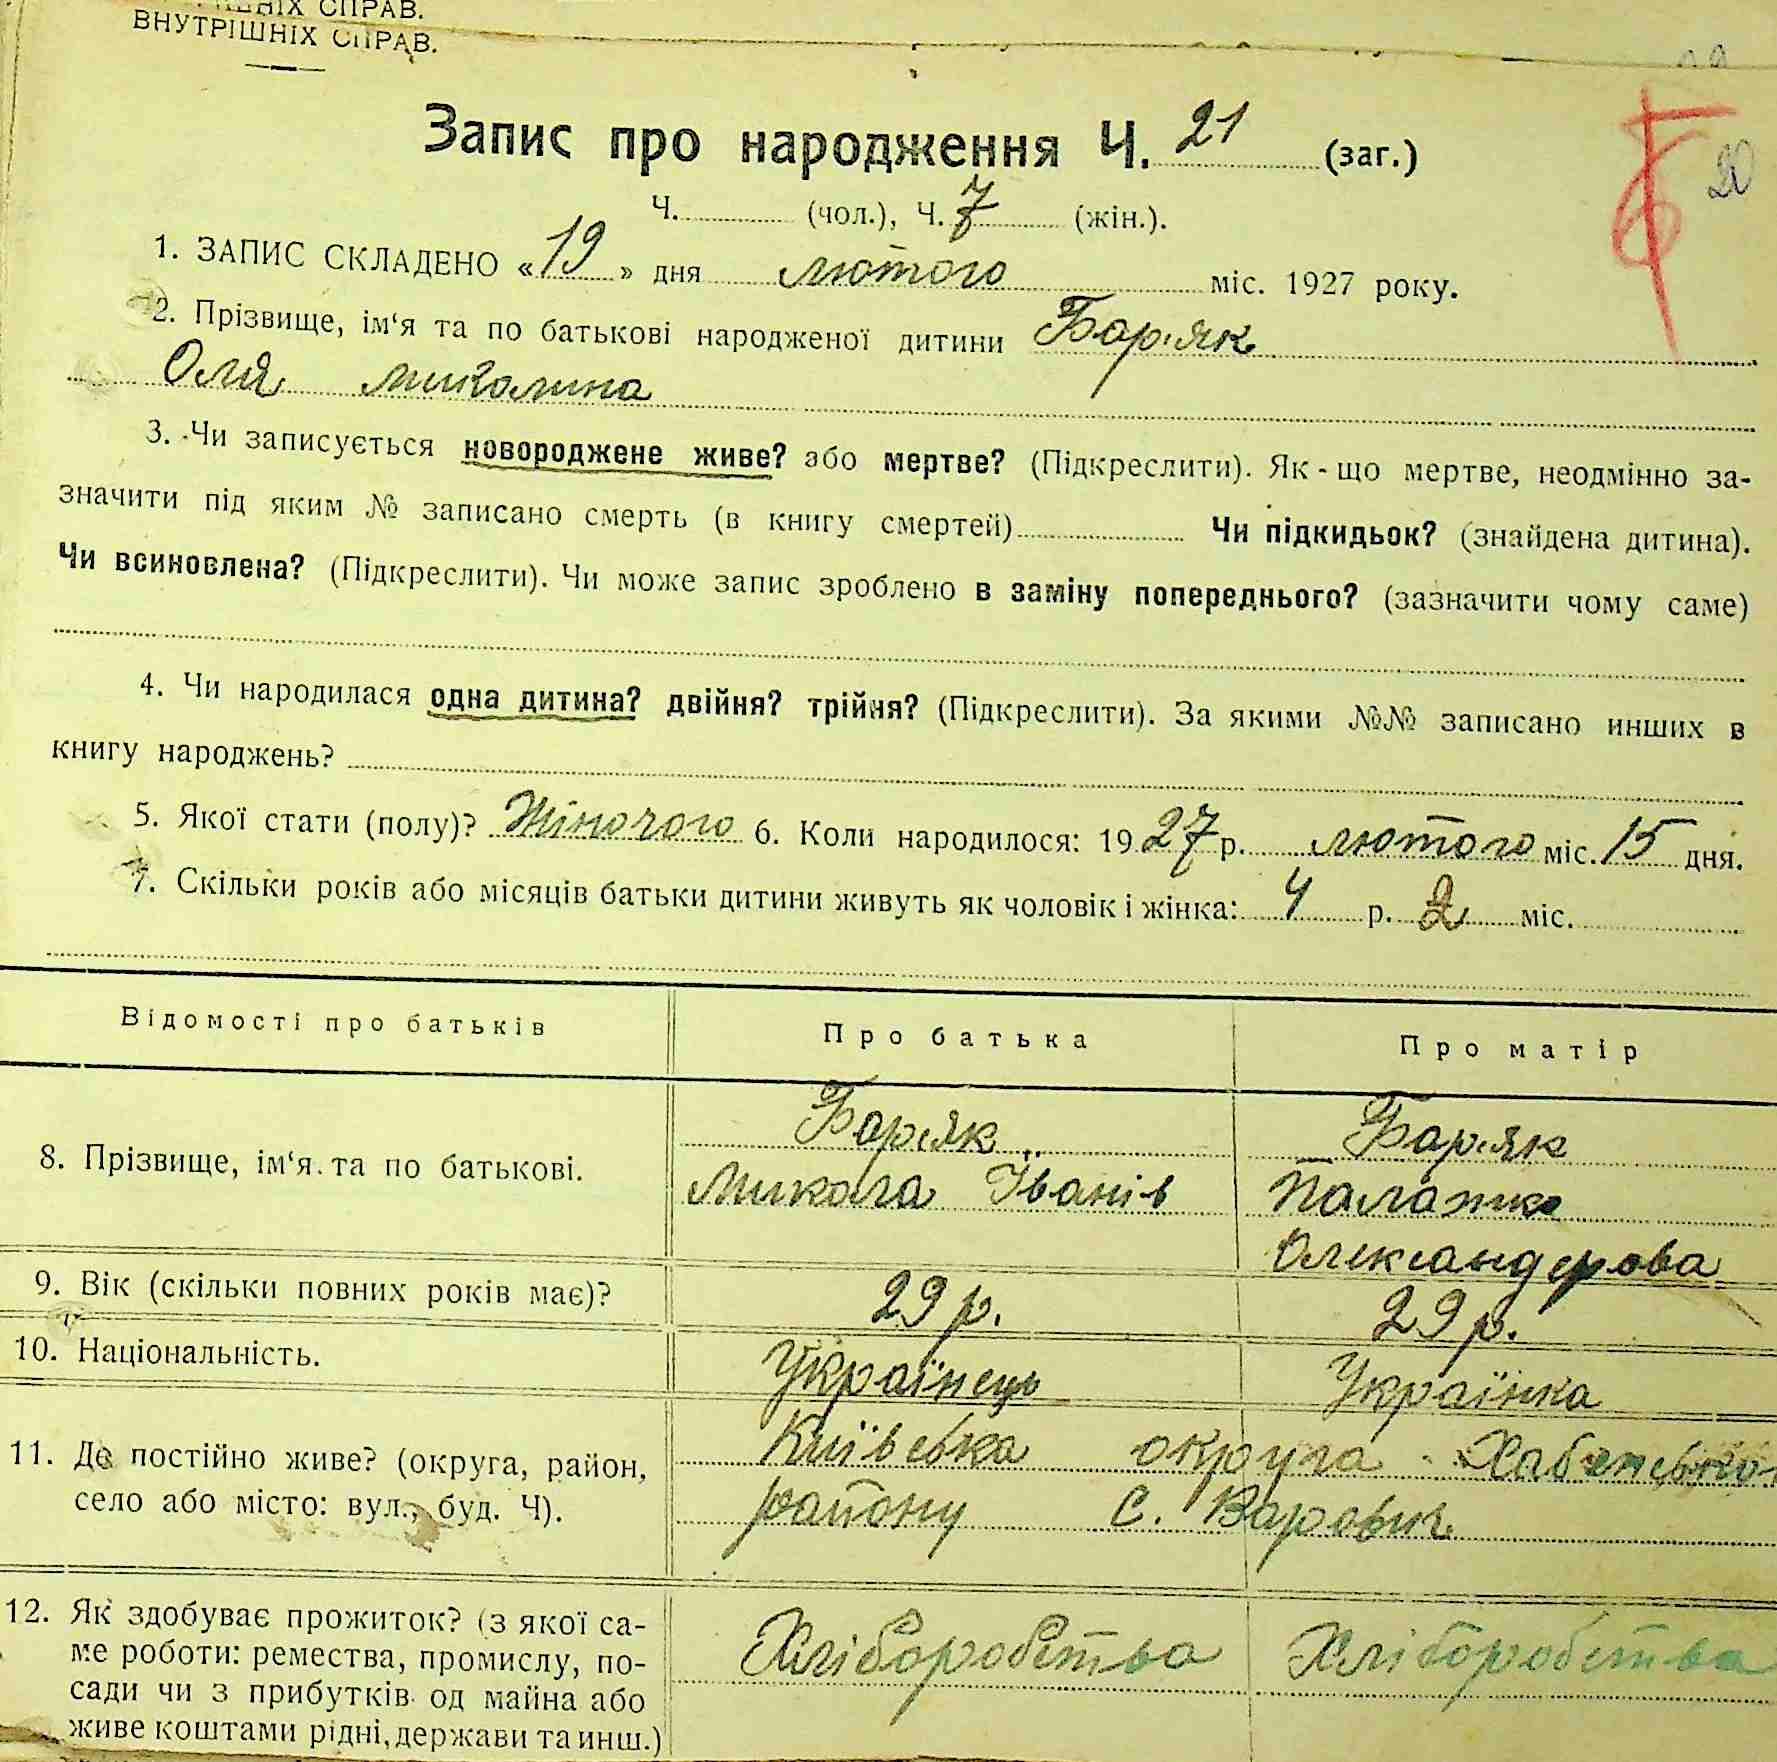 ВНУТРІШНІХ СПРАВ.
Запис про народження Ч. 21 (заг.)
20
Ч. (чол.), Ч. 7 (жін.).
1. ЗАПИС СКЛАДЕНО «19» дня лютого міс. 1927 року.
2. Прізвище, ім‘я та по батькові народженої дитини Бар'як
Оля Миколина
3. Чи записується новороджене живе? або мертве? (Підкреслити). Як-що мертве, неодмінно за-
значити під яким № записано смерть (в книгу смертей) Чи підкидьок? (знайдена дитина).
Чи всиновлена? (Підкреслити). Чи може запис зроблено в заміну попереднього? (зазначити чому саме)
4. Чи народилася одна дитина? двійня? трійня? (Підкреслити). За якими №№ записано инших в
книгу народжень?
5. Якої стати (полу)? Жіночого 6. Коли народилося: 1927 р. лютого міс. 15 дня.
7. Скільки років або місяців батьки дитини живуть як чоловік і жінка: 4 р. 2 міс.
Відомості про батьків Про батька Про матір
8. Прізвище, ім‘я та по батькові. Бар'як Бар'як
Микола Іванів Палажка
Олександрова
9. Вік (скільки повних років має)? 29 р. 29 р.
10. Національність. Українець Українка
11. Де постійно живе? (округа, район, Київська округа Хабенського
село або місто: вул., буд. Ч). району С. Варовичі
12. Як здобуває прожиток? (з якої са- Хліборобства Хліборобства
ме роботи: ремества, промислу, по-
сади чи з прибутків од майна або
живе коштами рідні, держави та инш.)